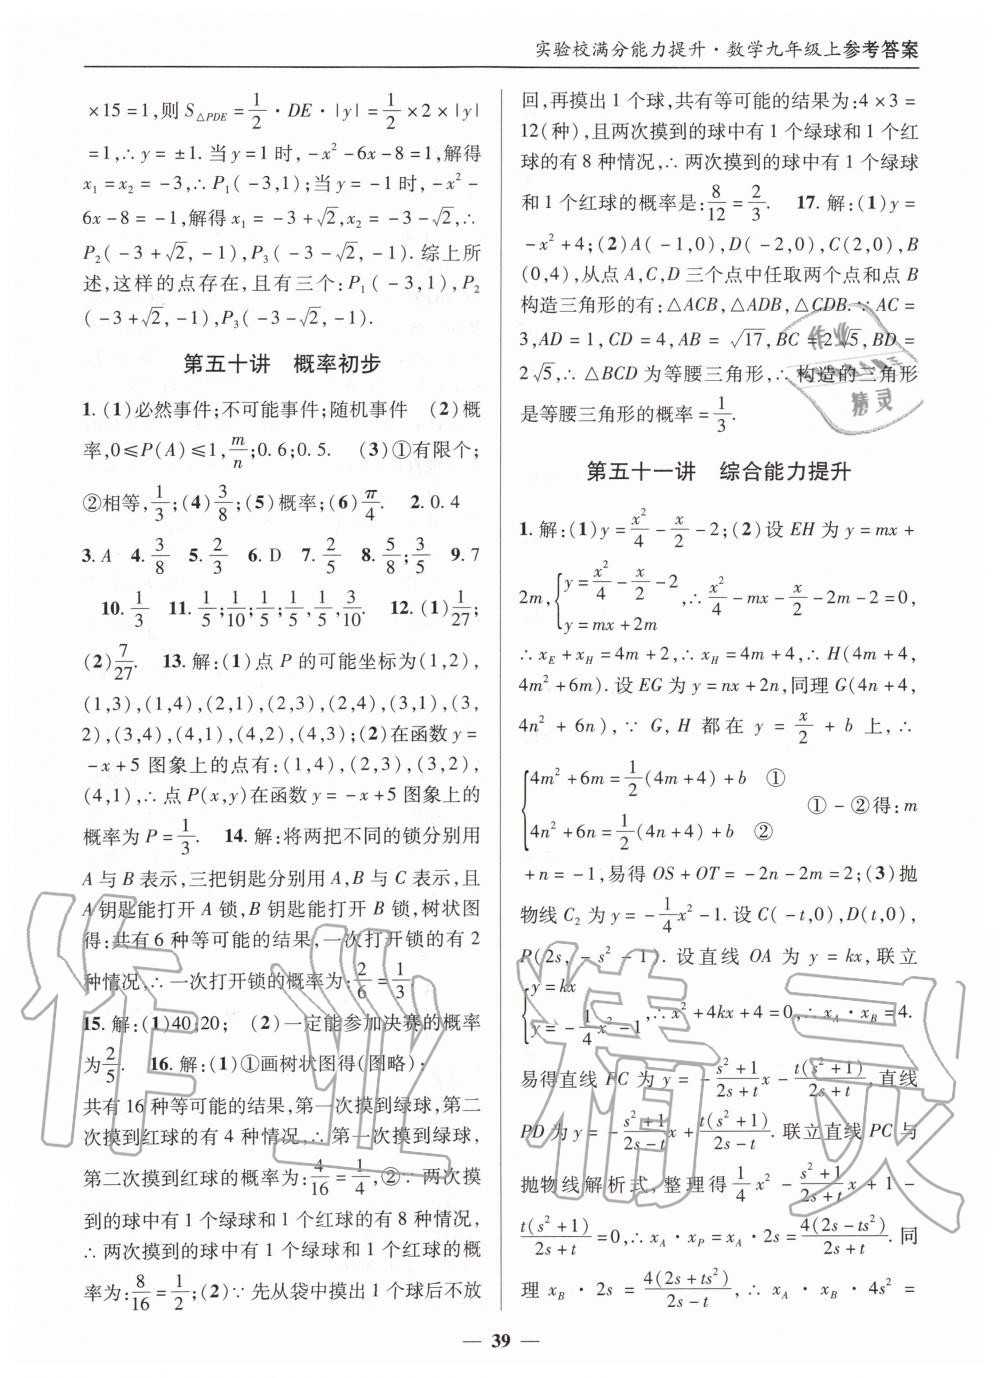 实验校满分能力提升·数学九年级上参考答案
×15=1,则 S△PDE = 1/2 · DE · |y| = 1/2 ×2×|y|
=1,∴ y = ±1. 当 y=1 时, -x²-6x-8=1,解得
x₁=x₂= -3,∴ P₁( -3,1);当 y= -1 时, -x²-
6x-8= -1,解得 x₁= -3+√2,x₂= -3-√2,∴
P₂( -3+√2, -1),P₃( -3-√2, -1). 综上所
述,这样的点存在,且有三个:P₁( -3,1),P₂
( -3+√2, -1),P₃( -3-√2, -1).
第五十讲 概率初步
1. (1)必然事件;不可能事件;随机事件 (2)概
率,0≤P(A)≤1,m/n;0.6;0.5. (3)①有限个;
②相等,1/3;(4)3/8;(5)概率;(6)π/4. 2.0.4
3. A 4. 3/8 5. 2/3 6. D 7. 2/5 8. 5/8;3/5 9. 7
10. 1/3 11. 1/5;1/10;1/5;1/5,1/5,3/10. 12. (1)1/27;
(2)7/27. 13. 解:(1)点 P 的可能坐标为(1,2),
(1,3),(1,4),(2,1),(2,3),(2,4),(3,1),(3,
2),(3,4),(4,1),(4,2),(4,3);(2)在函数 y=
-x+5 图象上的点有:(1,4),(2,3),(3,2),
(4,1),∴ 点 P(x,y)在函数 y= -x+5 图象上的
概率为 P=1/3. 14. 解:将两把不同的锁分别用
A 与 B 表示,三把钥匙分别用 A,B 与 C 表示,且
A 钥匙能打开 A 锁,B 钥匙能打开 B 锁,树状图
得:共有 6 种等可能的结果,一次打开锁的有 2
种情况,∴ 一次打开锁的概率为:2/6=1/3.
15. 解:(1)40,20; (2)一定能参加决赛的概率
为2/5. 16. 解:(1)①画树状图得(图略):
共有 16 种等可能的结果,第一次摸到绿球,第二
次摸到红球的有 4 种情况,∴ 第一次摸到绿球,
第二次摸到红球的概率为:4/16=1/4,②∵ 两次摸
到的球中有 1 个绿球和 1 个红球的有 8 种情况,
∴ 两次摸到的球中有 1 个绿球和 1 个红球的概
率为:8/16=1/2;(2)∵ 先从袋中摸出 1 个球后不放
回,再摸出 1 个球,共有等可能的结果为:4×3=
12(种),且两次摸到的球中有 1 个绿球和 1 个红
球的有 8 种情况,∴ 两次摸到的球中有 1 个绿球
和 1 个红球的概率是:8/12=2/3. 17. 解:(1)y=
-x²+4;(2)A( -1,0),D( -2,0),C(2,0),B
(0,4),从点 A,C,D 三个点中任取两个点和点 B
构造三角形的有:△ACB,△ADB,△CDB. ∵ AC=
3,AD=1,CD=4,AB=√17,BC=2√5,BD=
2√5,∴ △BCD 为等腰三角形,∴ 构造的三角形
是等腰三角形的概率=1/3.
第五十一讲 综合能力提升
1. 解:(1)y=x²/4-x/2-2;(2)设 EH 为 y=mx+
2m,{y=x²/4-x/2-2
y=mx+2m ,∴ x²/4-mx-x/2-2m-2=0,
∴ xE+xH=4m+2,∴ xH=4m+4,∴ H(4m+4,
4m²+6m). 设 EG 为 y=nx+2n,同理 G(4n+4,
4n²+6n),∵ G,H 都在 y=x/2+b 上,∴
{4m²+6m=1/2(4m+4)+b ①
4n²+6n=1/2(4n+4)+b ② ①-②得:m
+n= -1,易得 OS+OT= -2n-2m=2;(3)抛
物线 C₂ 为 y= -1/4x²-1. 设 C( -t,0),D(t,0),
P(2s, -s²-1). 设直线 OA 为 y=kx,联立
{y=kx
y= -1/4x²-1 ,∴ x²+4kx+4=0,∴ xA·xB=4.
易得直线 PC 为 y= -(s²+1)/(2s+t)x-t(s²+1)/(2s+t),直线
PD 为 y= -(s²+1)/(2s-t)x+t(s²+1)/(2s-t). 联立直线 PC 与
抛物线解析式,整理得1/4x²-(s²+1)/(2s+t)x+1-
t(s²+1)/(2s+t)=0,∴ xA·xP=xA·2s=4(2s-ts²)/(2s+t). 同
理 xB·2s=4(2s+ts²)/(2s-t),∴ xA·xB·4s²=
— 39 —
作业
精灵
作业精灵